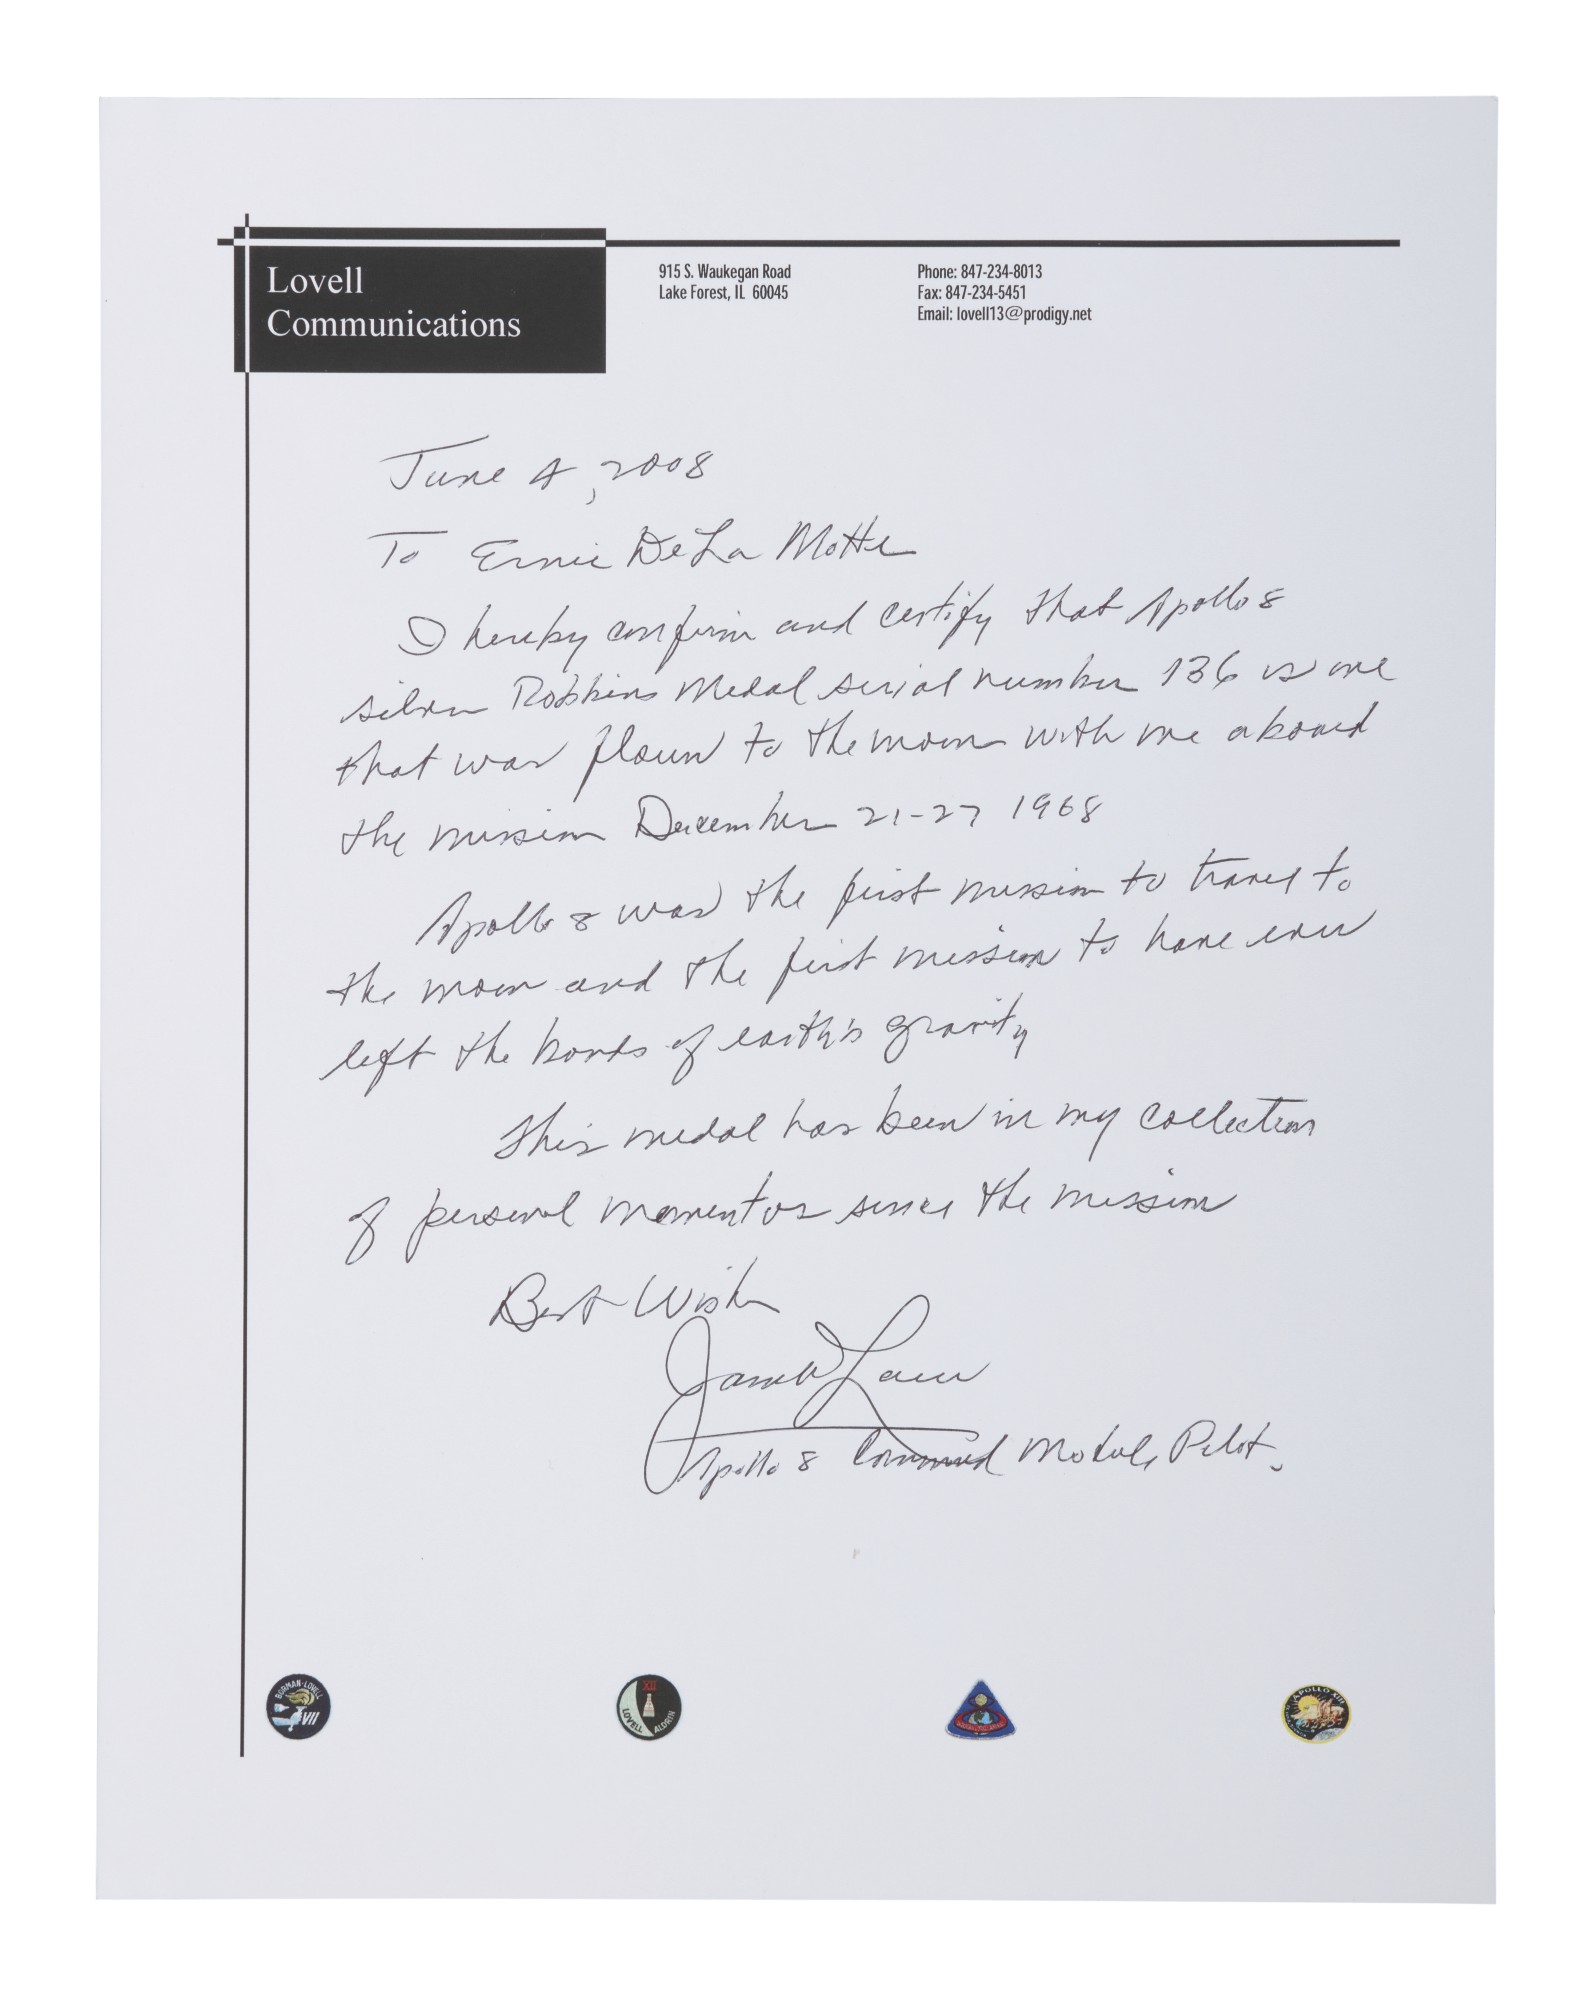 Lovell
Communications
915 S. Waukegan Road
Lake Forest, IL 60045
Phone: 847-234-8013
Fax: 847-234-5451
Email: lovell13@prodigy.net
June 4, 2008
To Ernie De La Motte
I hereby confirm and certify that Apollo 8
silver Robbins Medal serial number 136 is one
that was flown to the moon with me aboard
the mission December 21-27 1968
Apollo 8 was the first mission to travel to
the moon and the first mission to have ever
left the bonds of earth's gravity
This medal has been in my collection
of personal momentos since the mission
Best Wishes
James Lovell
Apollo 8 Command Module Pilot.
BORMAN-LOVELL
VII
XII
LOVELL ALDRIN
APOLLO XIII